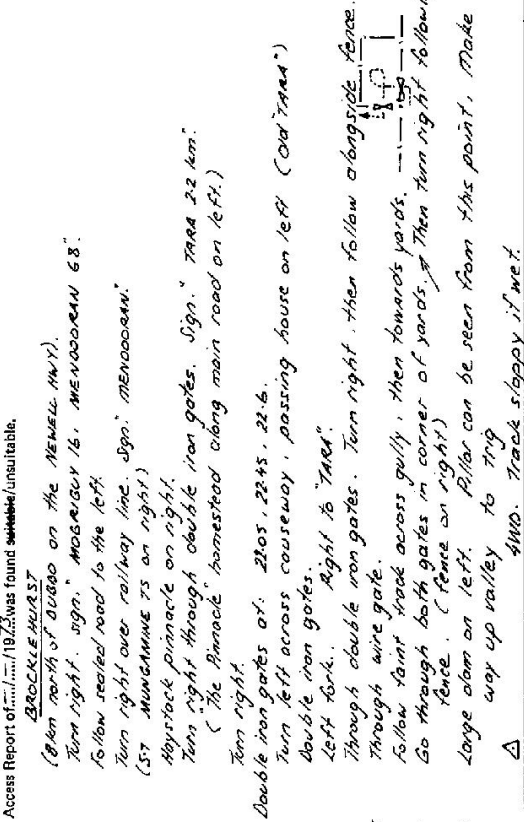 Access Report of....../....../1973 was found suitable/unsuitable.
BROCKLEHURST
(8 km north of DUBBO on the NEWELL HWY).
Turn right. sign." MOGRIGUY 16, MENDOORAN 68".
Follow sealed road to the left.
Turn right over railway line. Sign." MENDOORAN."
(5.7 MUNGAMINE TS on right)
Haystack pinnacle on right.
Turn right through double iron gates. Sign." TARA 2.2 km."
("The Pinnacle" homestead along main road on left.)
Turn right.
Double iron gates at: 22.05, 22.45, 22.6.
Turn left across causeway, passing house on left (old "TARA")
Double iron gates.
Left fork. Right to "TARA".
Through double iron gates. Turn right, then follow alongside fence.
Through wire gate.
Follow faint track across gully, then towards yards.
Go through both gates in corner of yards. Then turn right follow
fence. (fence on right)
Large dam on left. Pillar can be seen from this point. Make
way up valley to trig
4WD. Track sloppy if wet.